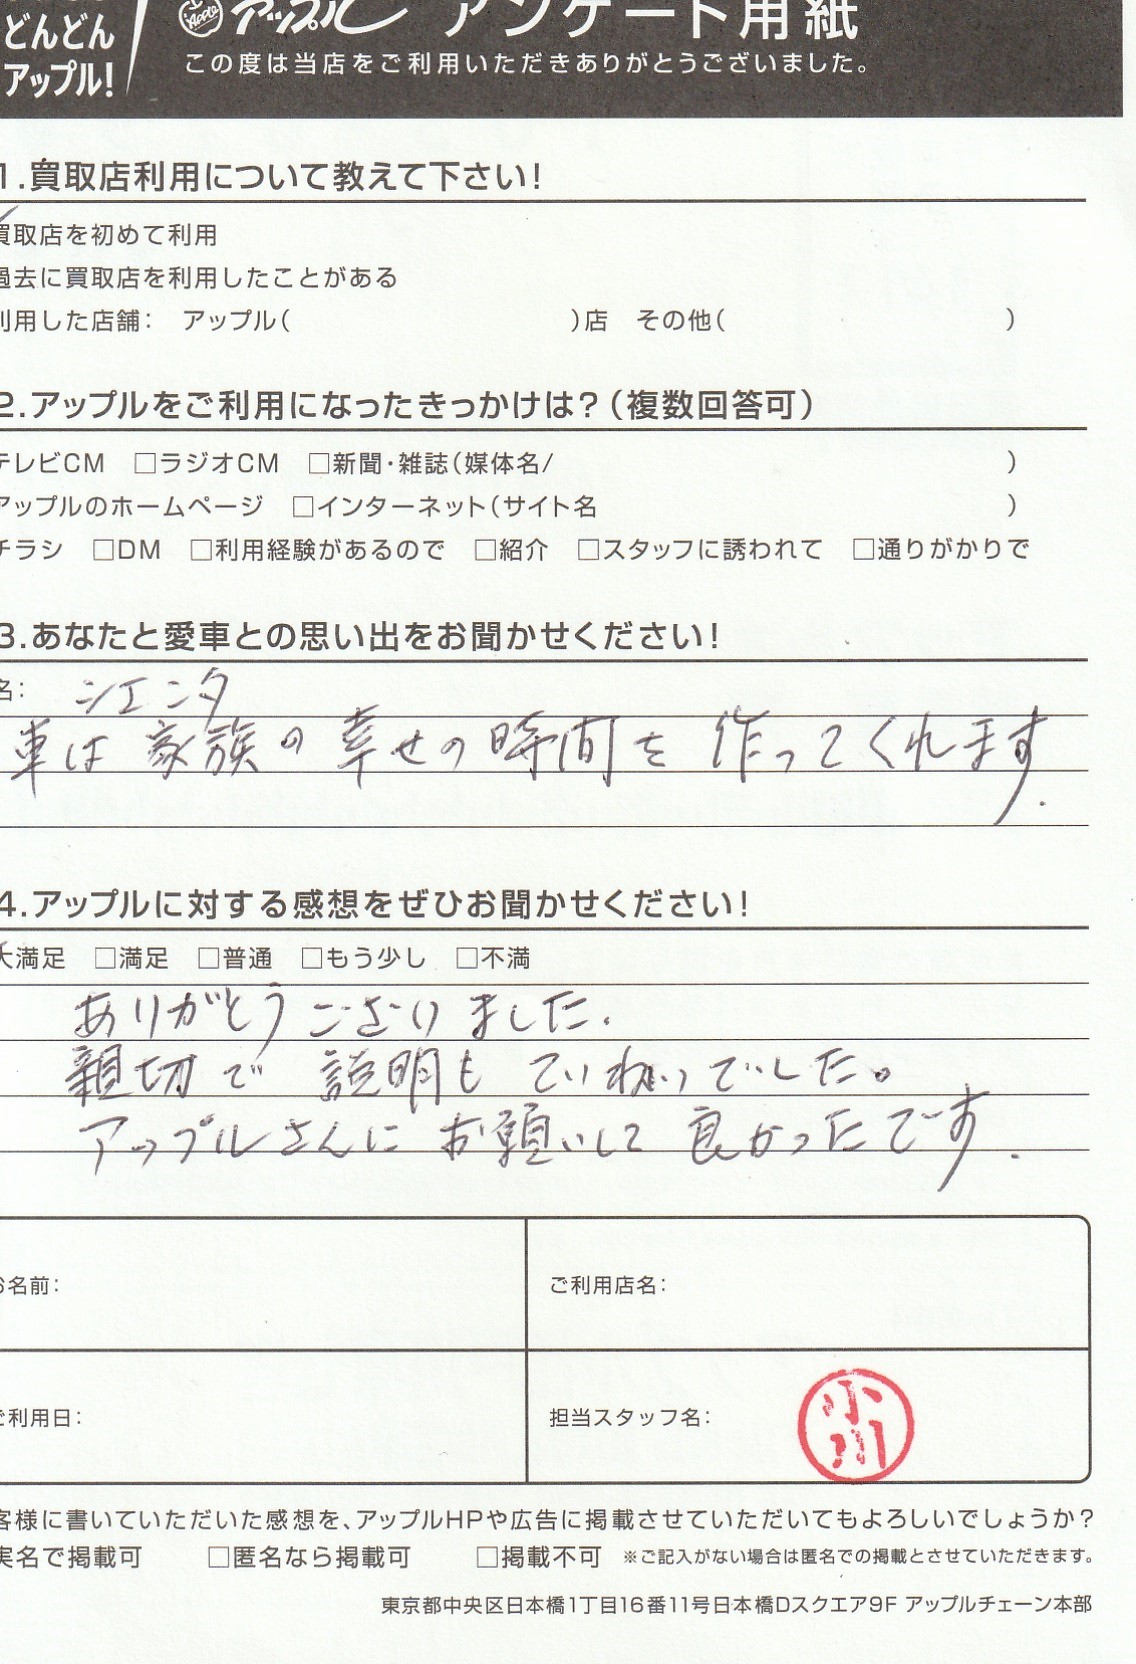 どんどん
アップル!
Apple アップル アンケート用紙
この度は当店をご利用いただきありがとうございました。
1.買取店利用について教えて下さい!
買取店を初めて利用
過去に買取店を利用したことがある
利用した店舗: アップル( )店 その他( )
2.アップルをご利用になったきっかけは?(複数回答可)
テレビCM □ラジオCM □新聞・雑誌(媒体名/ )
アップルのホームページ □インターネット(サイト名 )
チラシ □DM □利用経験があるので □紹介 □スタッフに誘われて □通りがかりで
3.あなたと愛車との思い出をお聞かせください!
名: シエンタ
車は家族の幸せの時間を作ってくれます.
4.アップルに対する感想をぜひお聞かせください!
大満足 □満足 □普通 □もう少し □不満
ありがとうございました.
親切で 説明も ていねいでした。
アップルさんに お願いして 良かったです.
お名前:
ご利用店名:
ご利用日:
担当スタッフ名: 小川
客様に書いていただいた感想を、アップルHPや広告に掲載させていただいてもよろしいでしょうか?
実名で掲載可 □匿名なら掲載可 □掲載不可 ※ご記入がない場合は匿名での掲載とさせていただきます。
東京都中央区日本橋1丁目16番11号日本橋Dスクエア9F アップルチェーン本部